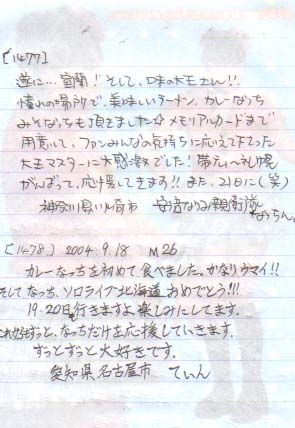 [1477]
遂に…室蘭!そして、味の大王さん!!
憧れの場所で、美味しいラーメン、カレーなっち
みそなっちも頂きました☆メモリアルカードまで
用意して、ファンみんなの気持ちに応えて下さった
大王マスターに大感激でした!帯広〜札幌
がんばって、応援してきます!!また、21日に(笑)
神奈川県川崎市 安倍なつみ親衛隊
なっちん
[1478] 2004.9.18 M26
カレーなっちを初めて食べました。かなりウマイ!!
そしてなっち、ソロライブ北海道おめでとう!!!
19.20日行きますよ楽しみにしてます。
これからもずっと、なっちだけを応援していきます。
ずっとずっと大好きです。
愛知県名古屋市 てぃん